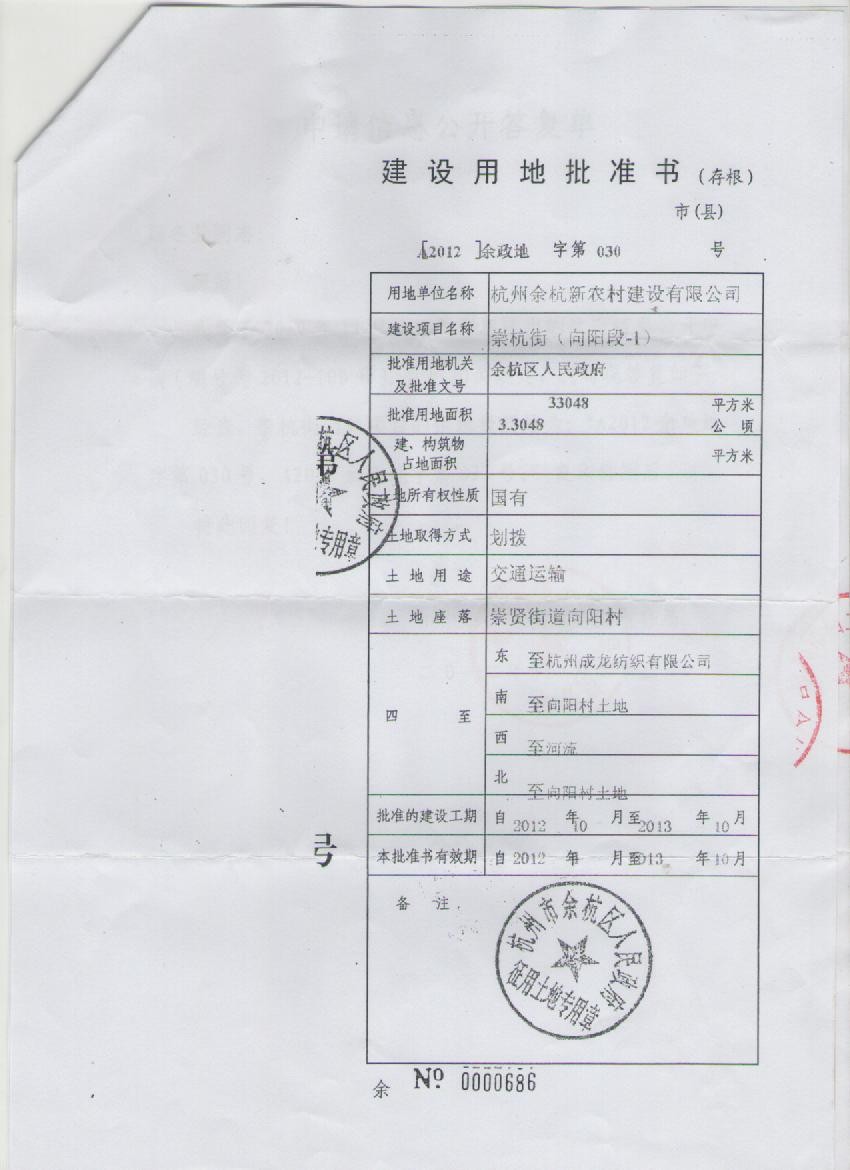 建设用地批准书（存根）
市(县)
[A2012]余政地 字第 030 号
用地单位名称 杭州余杭新农村建设有限公司
建设项目名称 崇杭街（向阳段-1）
批准用地机关及批准文号 余杭区人民政府
批准用地面积 33048 平方米
3.3048 公顷
建、构筑物占地面积 平方米
土地所有权性质 国有
土地取得方式 划拨
土地用途 交通运输
土地座落 崇贤街道向阳村
四至
东 至杭州成龙纺织有限公司
南 至向阳村土地
西 至河流
北 至向阳村土地
批准的建设工期 自 2012 年 10 月至 2013 年 10 月
本批准书有效期 自 2012 年 月至 2013 年 10 月
备注
杭州市余杭区人民政府
征用土地专用章
杭区人民政府
地专用章
书
号
余 Nº 0000686